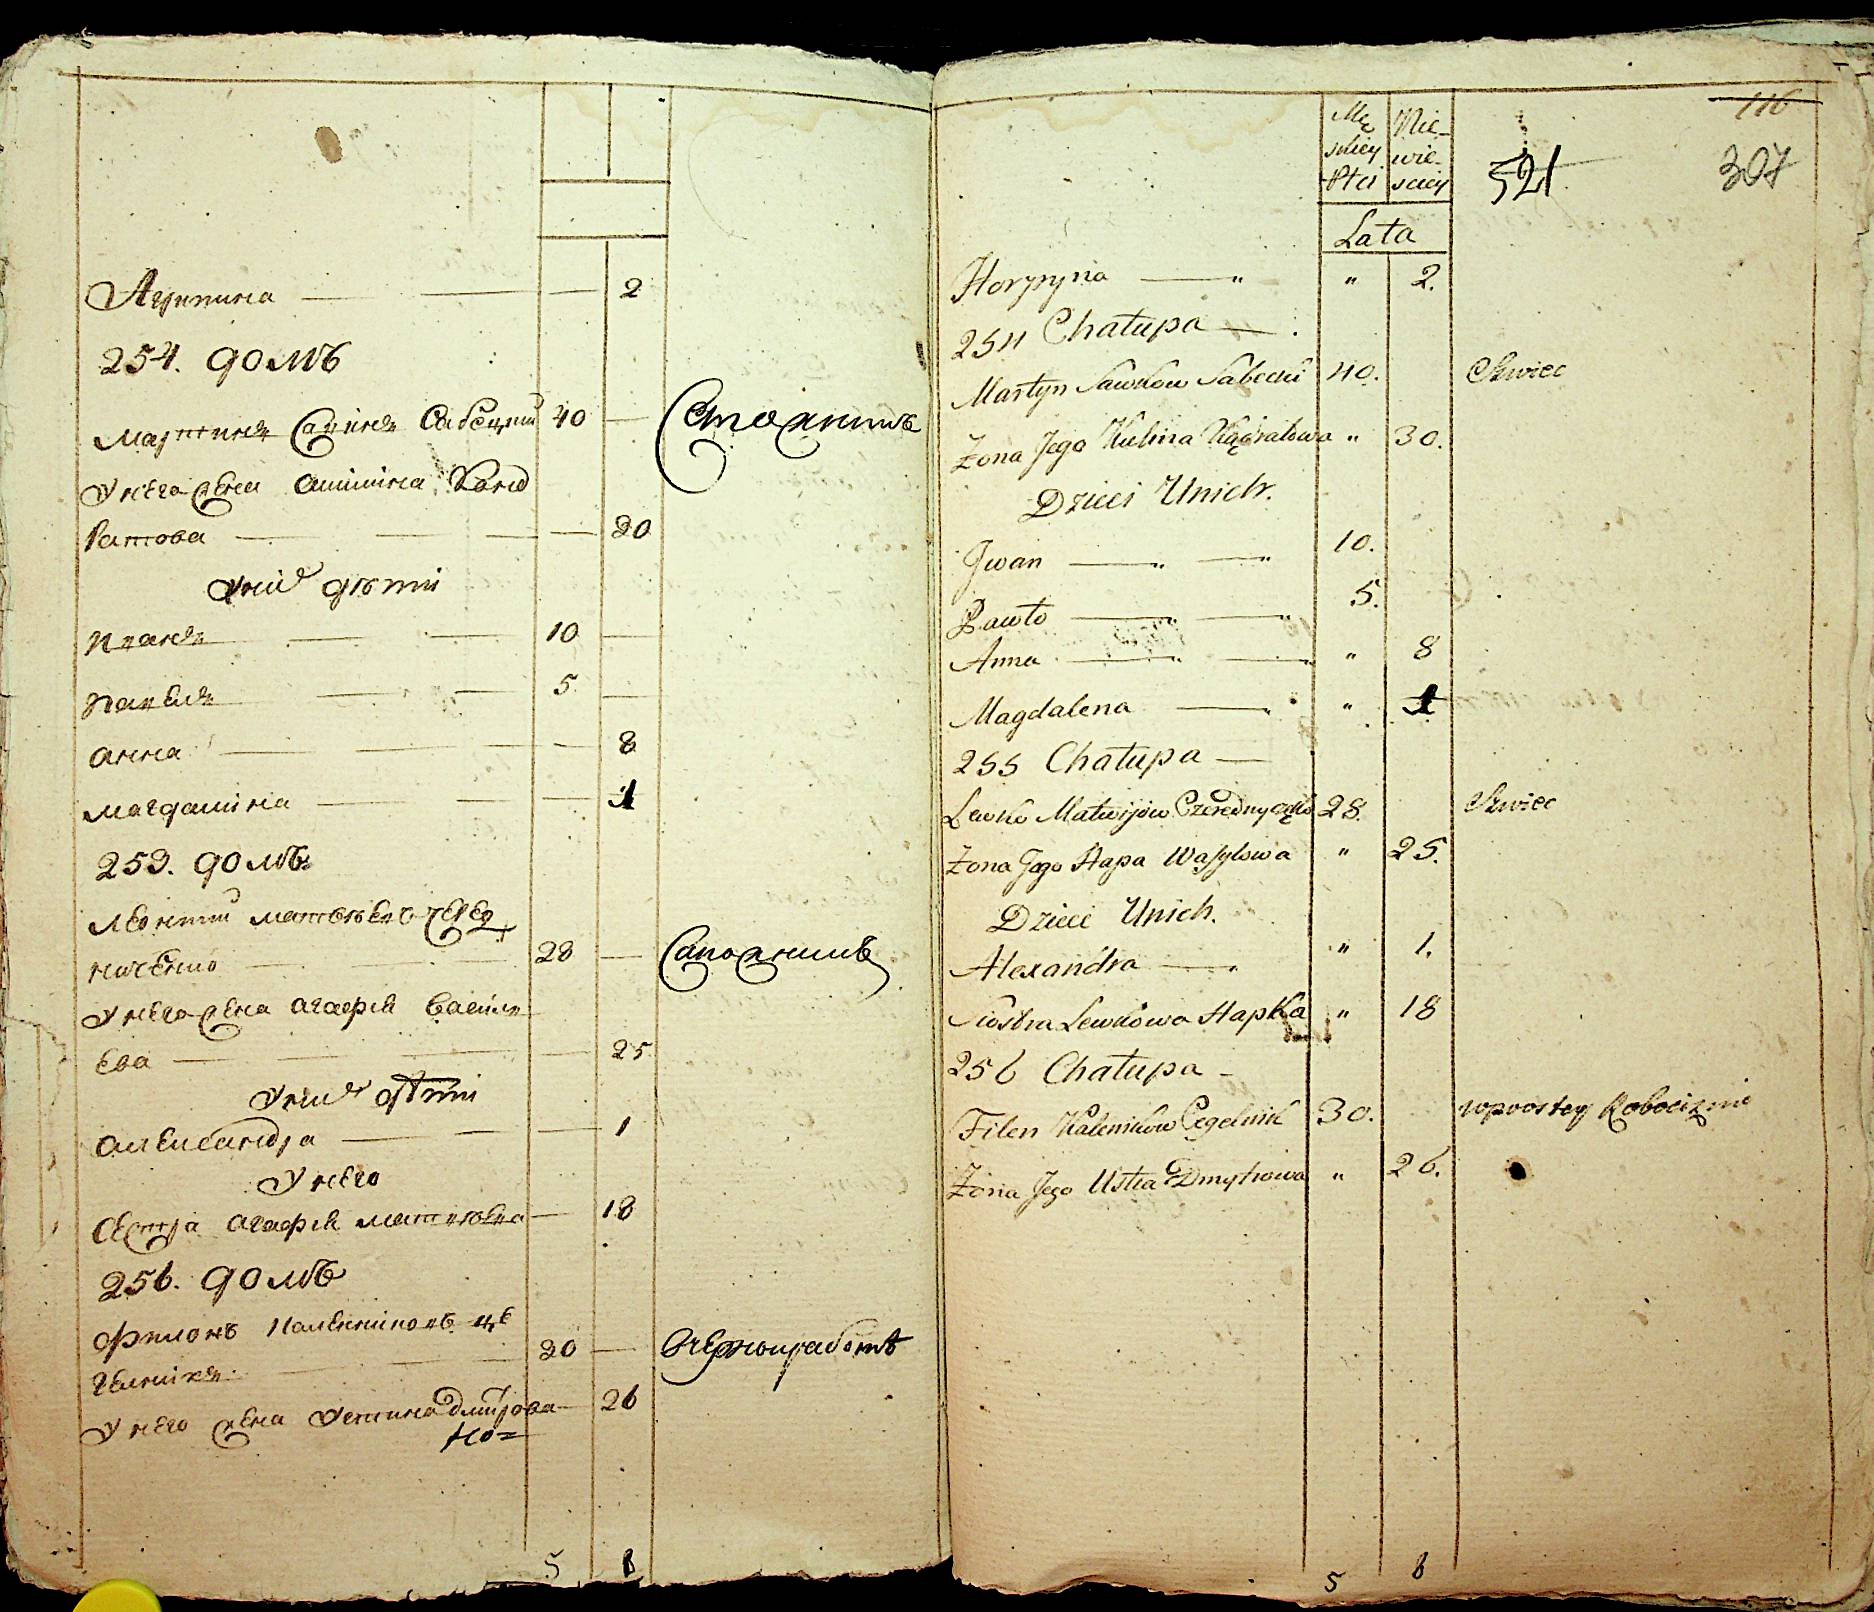 Агрипина 2
254. домъ
Мартинъ Савинъ Сабецкий 40
У него жена Акилина Конд
ратова 30
У них дети
Иванъ 10
Павелъ 5
Анна 8
Магдалина 1
255. домъ
Леонтий Матвеевъ Черед
ниченко 28 Сапожникъ
У него жена Агафия Василь
ева 25
У них дети
Александра 1
У него
сестра Агафия Матвеевна 18
256. домъ
Филонъ Калениковъ Це
гелникъ 30
У него жена Устина Дмитрова 26
5 8
116
Mę Nie-
skiey wie-
Płci sciey 521 307
Lata
Horpyna " 2.
254 Chałupa
Martyn Sawkow Sabecki 40. Szwiec
Zona Jego Kulina Kądratowa " 30.
Dzieci Unich.
Jwan 10.
Pawło 5.
Anna " 8
Magdalena " 1
255 Chałupa
Lewko Matwijow Czerednyczęko 28. Szwiec
Zona Jego Hapa Wasylowa " 25.
Dzieci Unich.
Alexandra " 1.
Siostra Lewkowa Hapka " 18
256 Chałupa
Filon Kalenikow Cegelnik 30. wprostey Robociznie
Zona Jego Ustia Dmytrowa " 26.
5 8